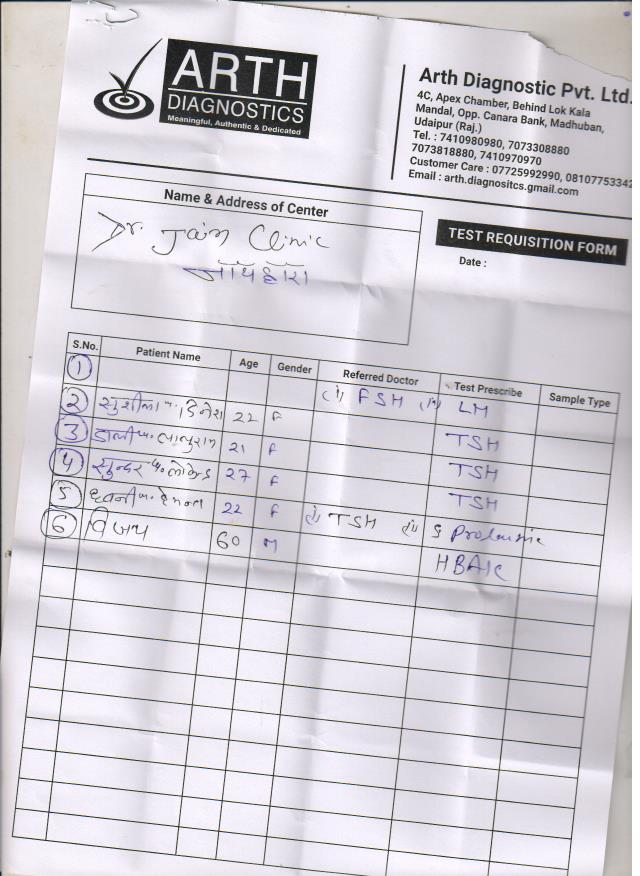 ARTH
DIAGNOSTICS
Meaningful, Authentic & Dedicated
Arth Diagnostic Pvt. Ltd.
4C, Apex Chamber, Behind Lok Kala
Mandal, Opp. Canara Bank, Madhuban,
Udaipur (Raj.)
Tel. : 7410980980, 7073308880
7073818880, 7410970970
Customer Care : 07725992990, 0810775334
Email : arth.diagnositcs.gmail.com
Name & Address of Center
Dr. Jain Clinic
TEST REQUISITION FORM
Date :
S.No. Patient Name Age Gender Referred Doctor Test Prescribe Sample Type
1
2 सुशीला 22 F (i) FSH (ii) LH
3 21 F TSH
4 सुन्दर 27 F TSH
5 22 F TSH
6 विजय 60 M (i) TSH (ii) S
HBA1C